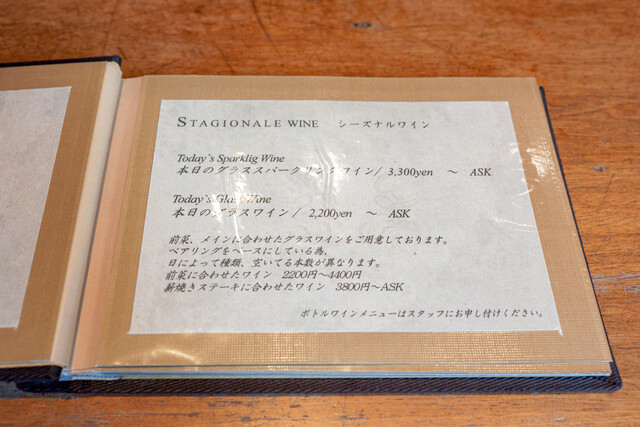 STAGIONALE WINE シーズナルワイン
Today's Sparklig Wine
本日のグラススパークリングワイン/ 3,300yen ～ ASK
Today's Glass Wine
本日のグラスワイン/ 2,200yen ～ ASK
前菜、メインに合わせたグラスワインをご用意しております。
ペアリングをベースにしている為、
日によって種類、空いてる本数が異なります。
前菜に合わせたワイン 2200円～4400円
薪焼きステーキに合わせたワイン 3800円～ASK
ボトルワインメニューはスタッフにお申し付けください。